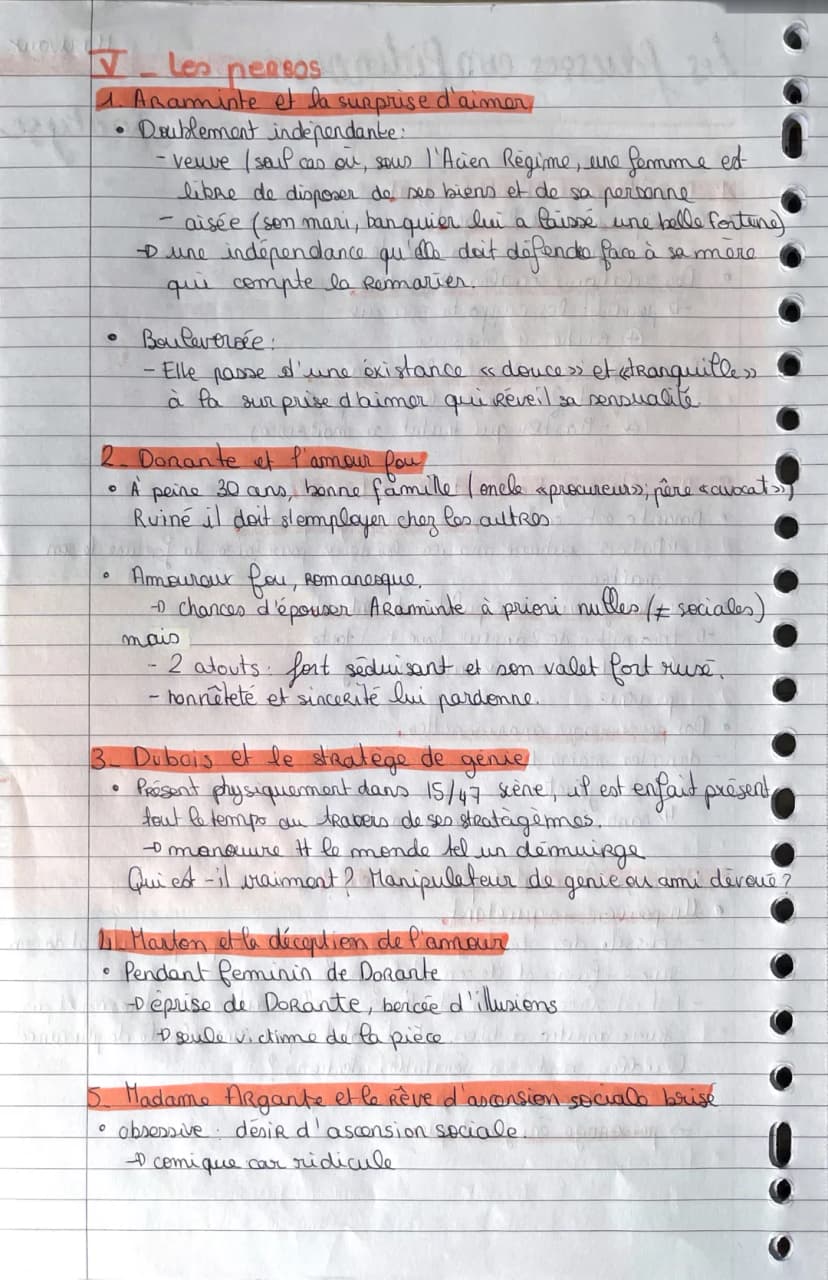 V - Les persos
1. Araminte et la surprise d'aimer
• Doublement indépendante:
- veuve (seul cas où, sous l'Acien Régime, une femme est
libre de disposer de ses biens et de sa personne
- aisée (son mari, banquier lui a laissé une belle fortune)
→ une indépendance qu'elle doit défendre face à sa mère
qui compte la remarier.
• Bouleversée:
- Elle passe d'une éxistance « douce » et « tranquille »
à la surprise d'aimer qui réveil sa sensualité
2- Dorante et l'amour fou
• À peine 30 ans, bonne famille (oncle « procureur » ; père « avocat »)
Ruiné il doit s'employer chez les autres
• Amoureux fou, romanesque.
→ chances d'épouser Araminte à priori nulles (≠ sociales)
mais
- 2 atouts : fort séduisant et son valet fort rusé.
- honnêteté et sincérité lui pardonne.
3- Dubois et le stratège de génie
• Présent physiquement dans 15/47 scène, il est enfait présent
tout le temps au travers de ses stratègèmes.
→ manœuvre tt le monde tel un démuirge
Qui est-il vraiment? Manipulateur de génie ou ami dévoué?
4. Marton et la déception de l'amour
• Pendant feminin de Dorante
→ éprise de Dorante, bercée d'illusions
→ seule victime de la pièce
5- Madame Argante et le rêve d'ascension sociale brisé
• obsessive : désir d'ascension sociale.
→ comique car ridicule